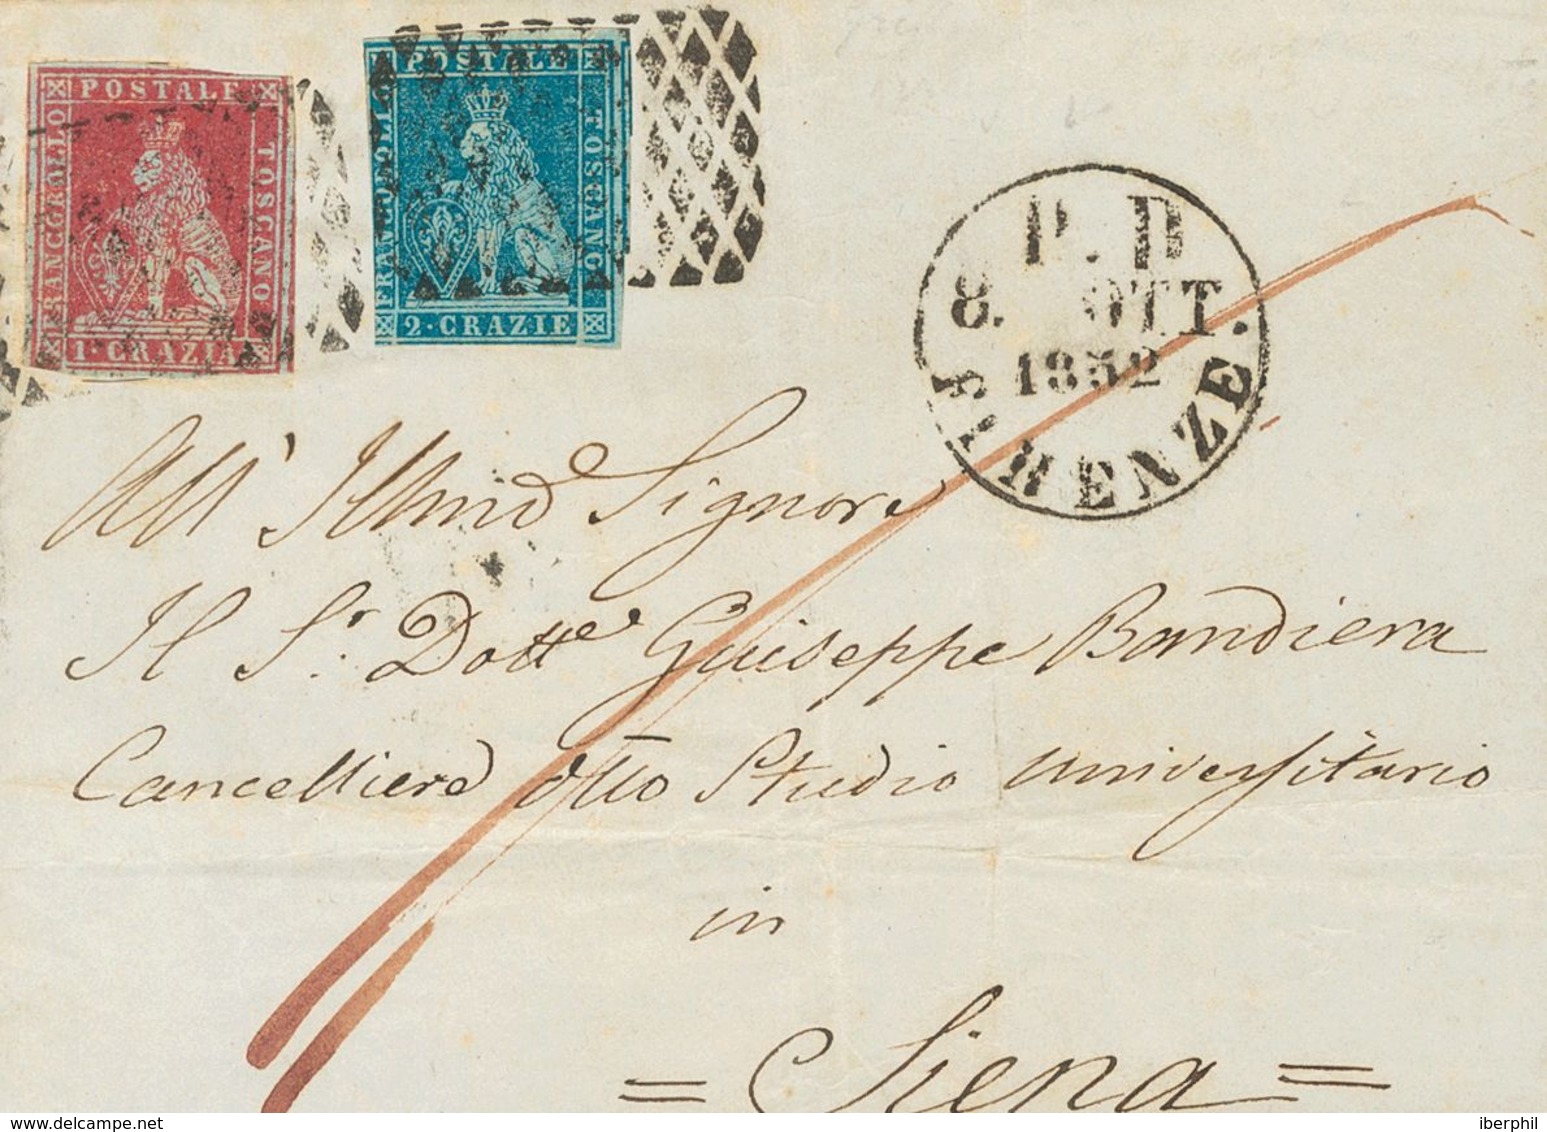 POSTALE
FRANCOBOLLO
TOSCANO
1·CRAZIA
POSTALE
TOSCANO
2·CRAZIE
P.D
8. OTT.
1852
FIRENZE
All' Illmo Signore
Il Sr. Dotte Guiseppe Bandiera
Cancelliere Studio universitario
in
= Siena =
iberphil